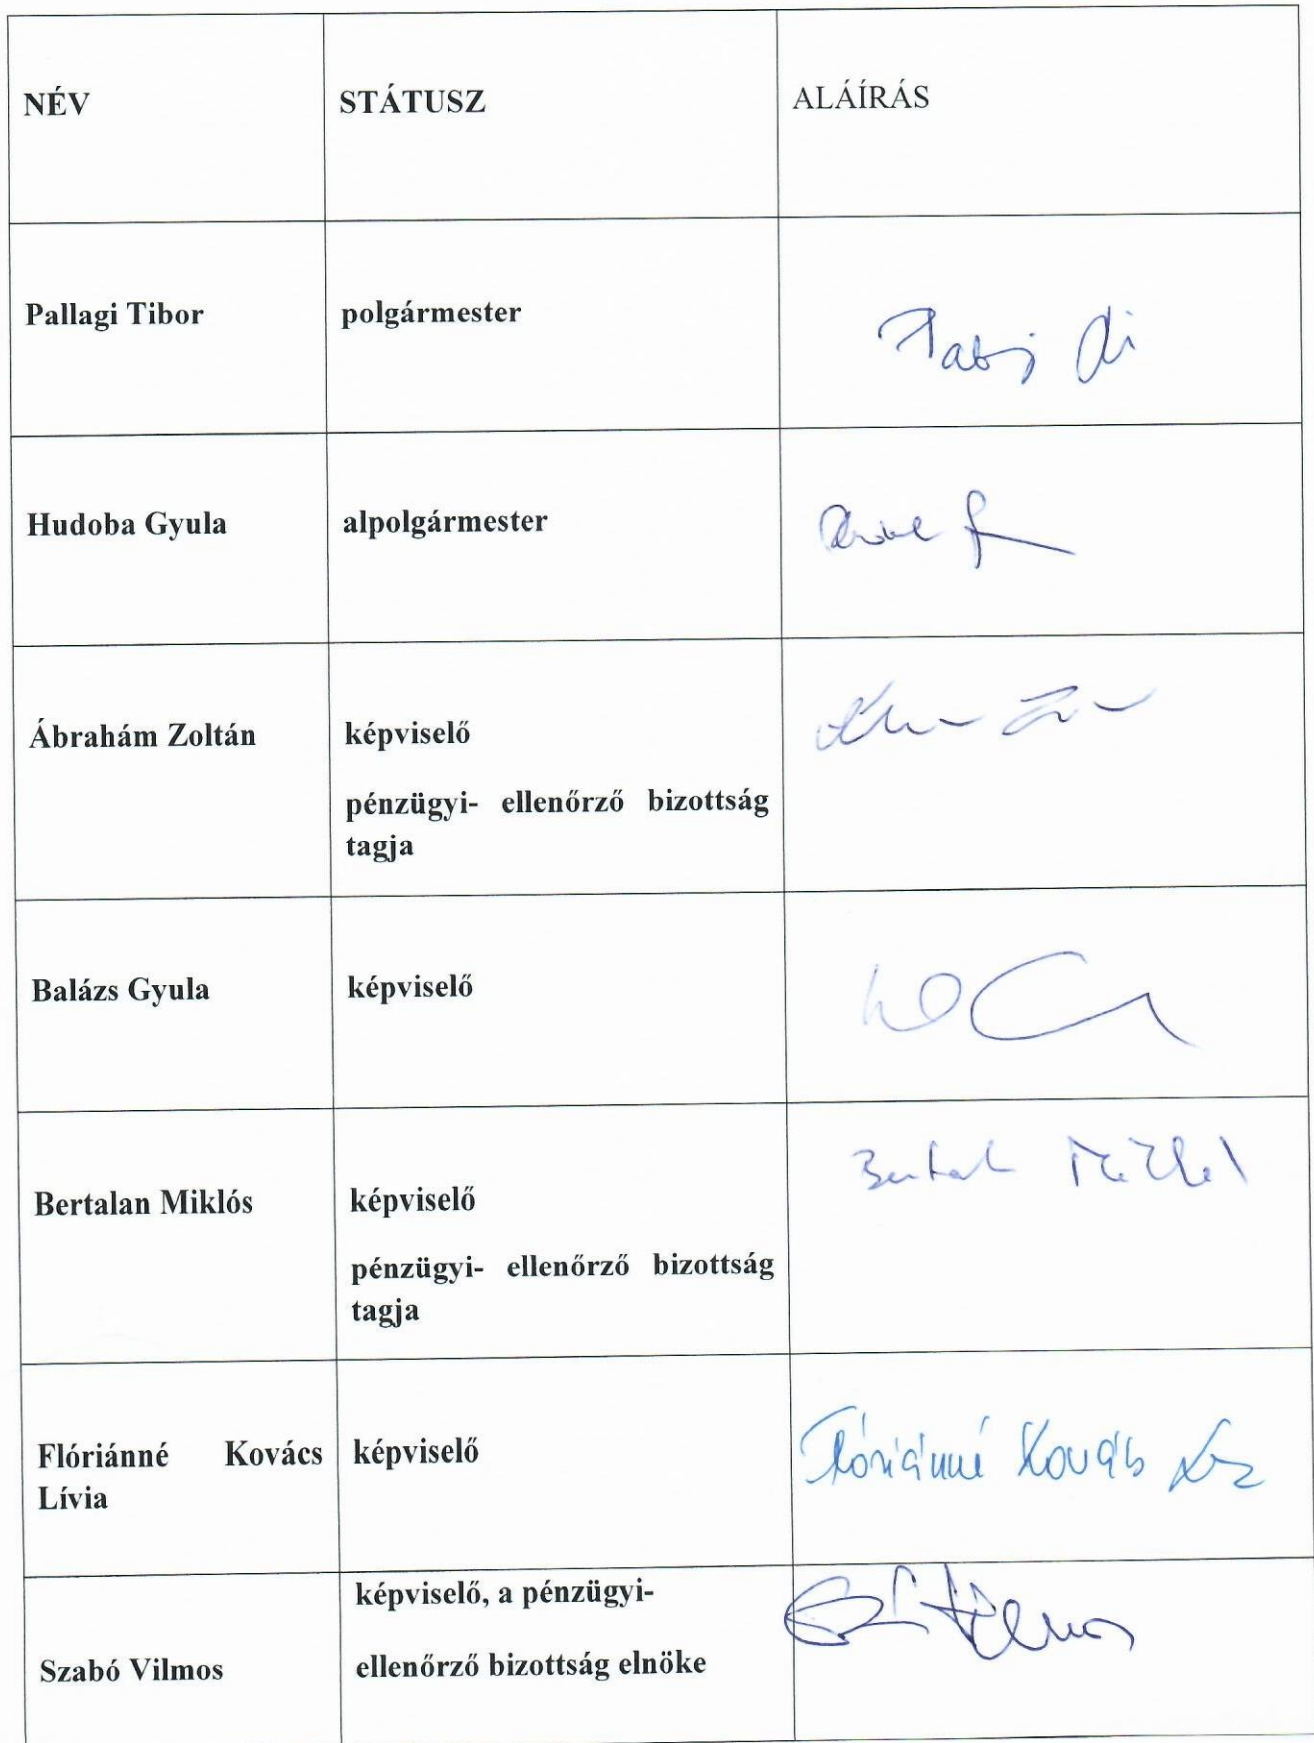 NÉV STÁTUSZ ALÁÍRÁS
Pallagi Tibor polgármester
Hudoba Gyula alpolgármester
Ábrahám Zoltán képviselő
pénzügyi- ellenőrző bizottság
tagja
Balázs Gyula képviselő
Bertalan Miklós képviselő
pénzügyi- ellenőrző bizottság
tagja
Flóriánné Kovács képviselő Flóriánné Kovács
Lívia
képviselő, a pénzügyi-
Szabó Vilmos ellenőrző bizottság elnöke